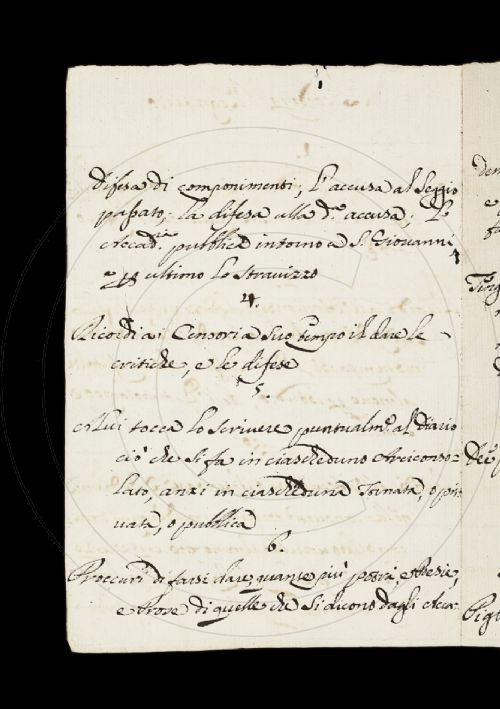 difesa di componimenti; l'accusa al Seggio
passato; la difesa alla d.ª accusa; Le
Accad.ie pubblica intorno a S. Giovanni
e per ultimo lo Stravizzo
4.
Ricordi a i Censori a suo tempo il dare le
critiche, e le difese
5.
A lui tocca lo scrivere puntualm.e al Diario
ciò che si fa in ciascheduno Arciconso=
lato, anzi in ciascheduna Tornata, o pri
vata, o pubblica
6.
Proccuri di farsi dare quante più potrà, e Poesie,
e Prose di quelle che si dicono dagli Acca